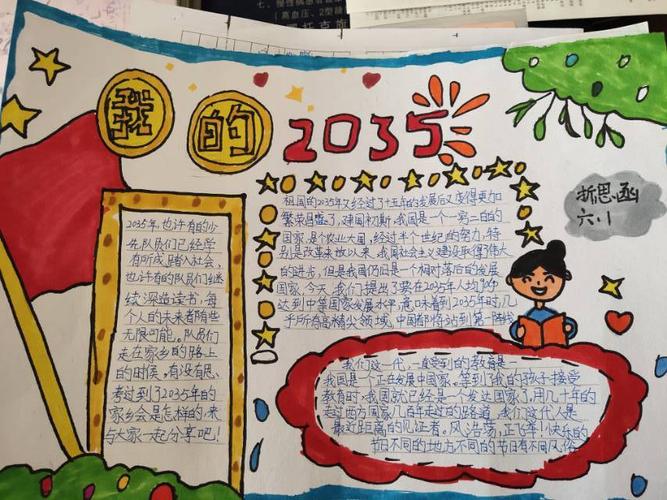 我的2035
折思函
六.1
祖国的2035年又经过了十五年的发展后又变得更加
繁荣昌盛了,建国初期,我国是一个一穷二白的
国家,是个农业大国,经过半个世纪的努力,特
别是改革开放以来,我国社会主义建设取得了伟大
的进步,但是我国仍旧是一个相对落后的发展
国家,今天,我们提出了要在2035年人均
达到中等国家发展水平,意味着到2035年时,几
乎所有高精尖领域,中国都将站到第一阵线
2035年,也许有的少
先队员们已经学
有所成,踏入社会,
也许有的队员们继
续深造读书,每
个人的未来都隋些
无限可能。队员们
走在家乡的路上
的时候,有没有思
考过到了2035年的
家乡会是怎样的,来
与大家一起分享吧!
我们这一代,一直受到的教育是
我国是一个正在发展中国家。等到了我的孩子接受
教育时,我国就已经是一个发达国家了,用几十年的
走过西方国家几百年走过的路道,我们这代人是
最近距离的见证者。风浩荡,正飞年!快乐的
节日不同的地方不同的节日有不同风俗